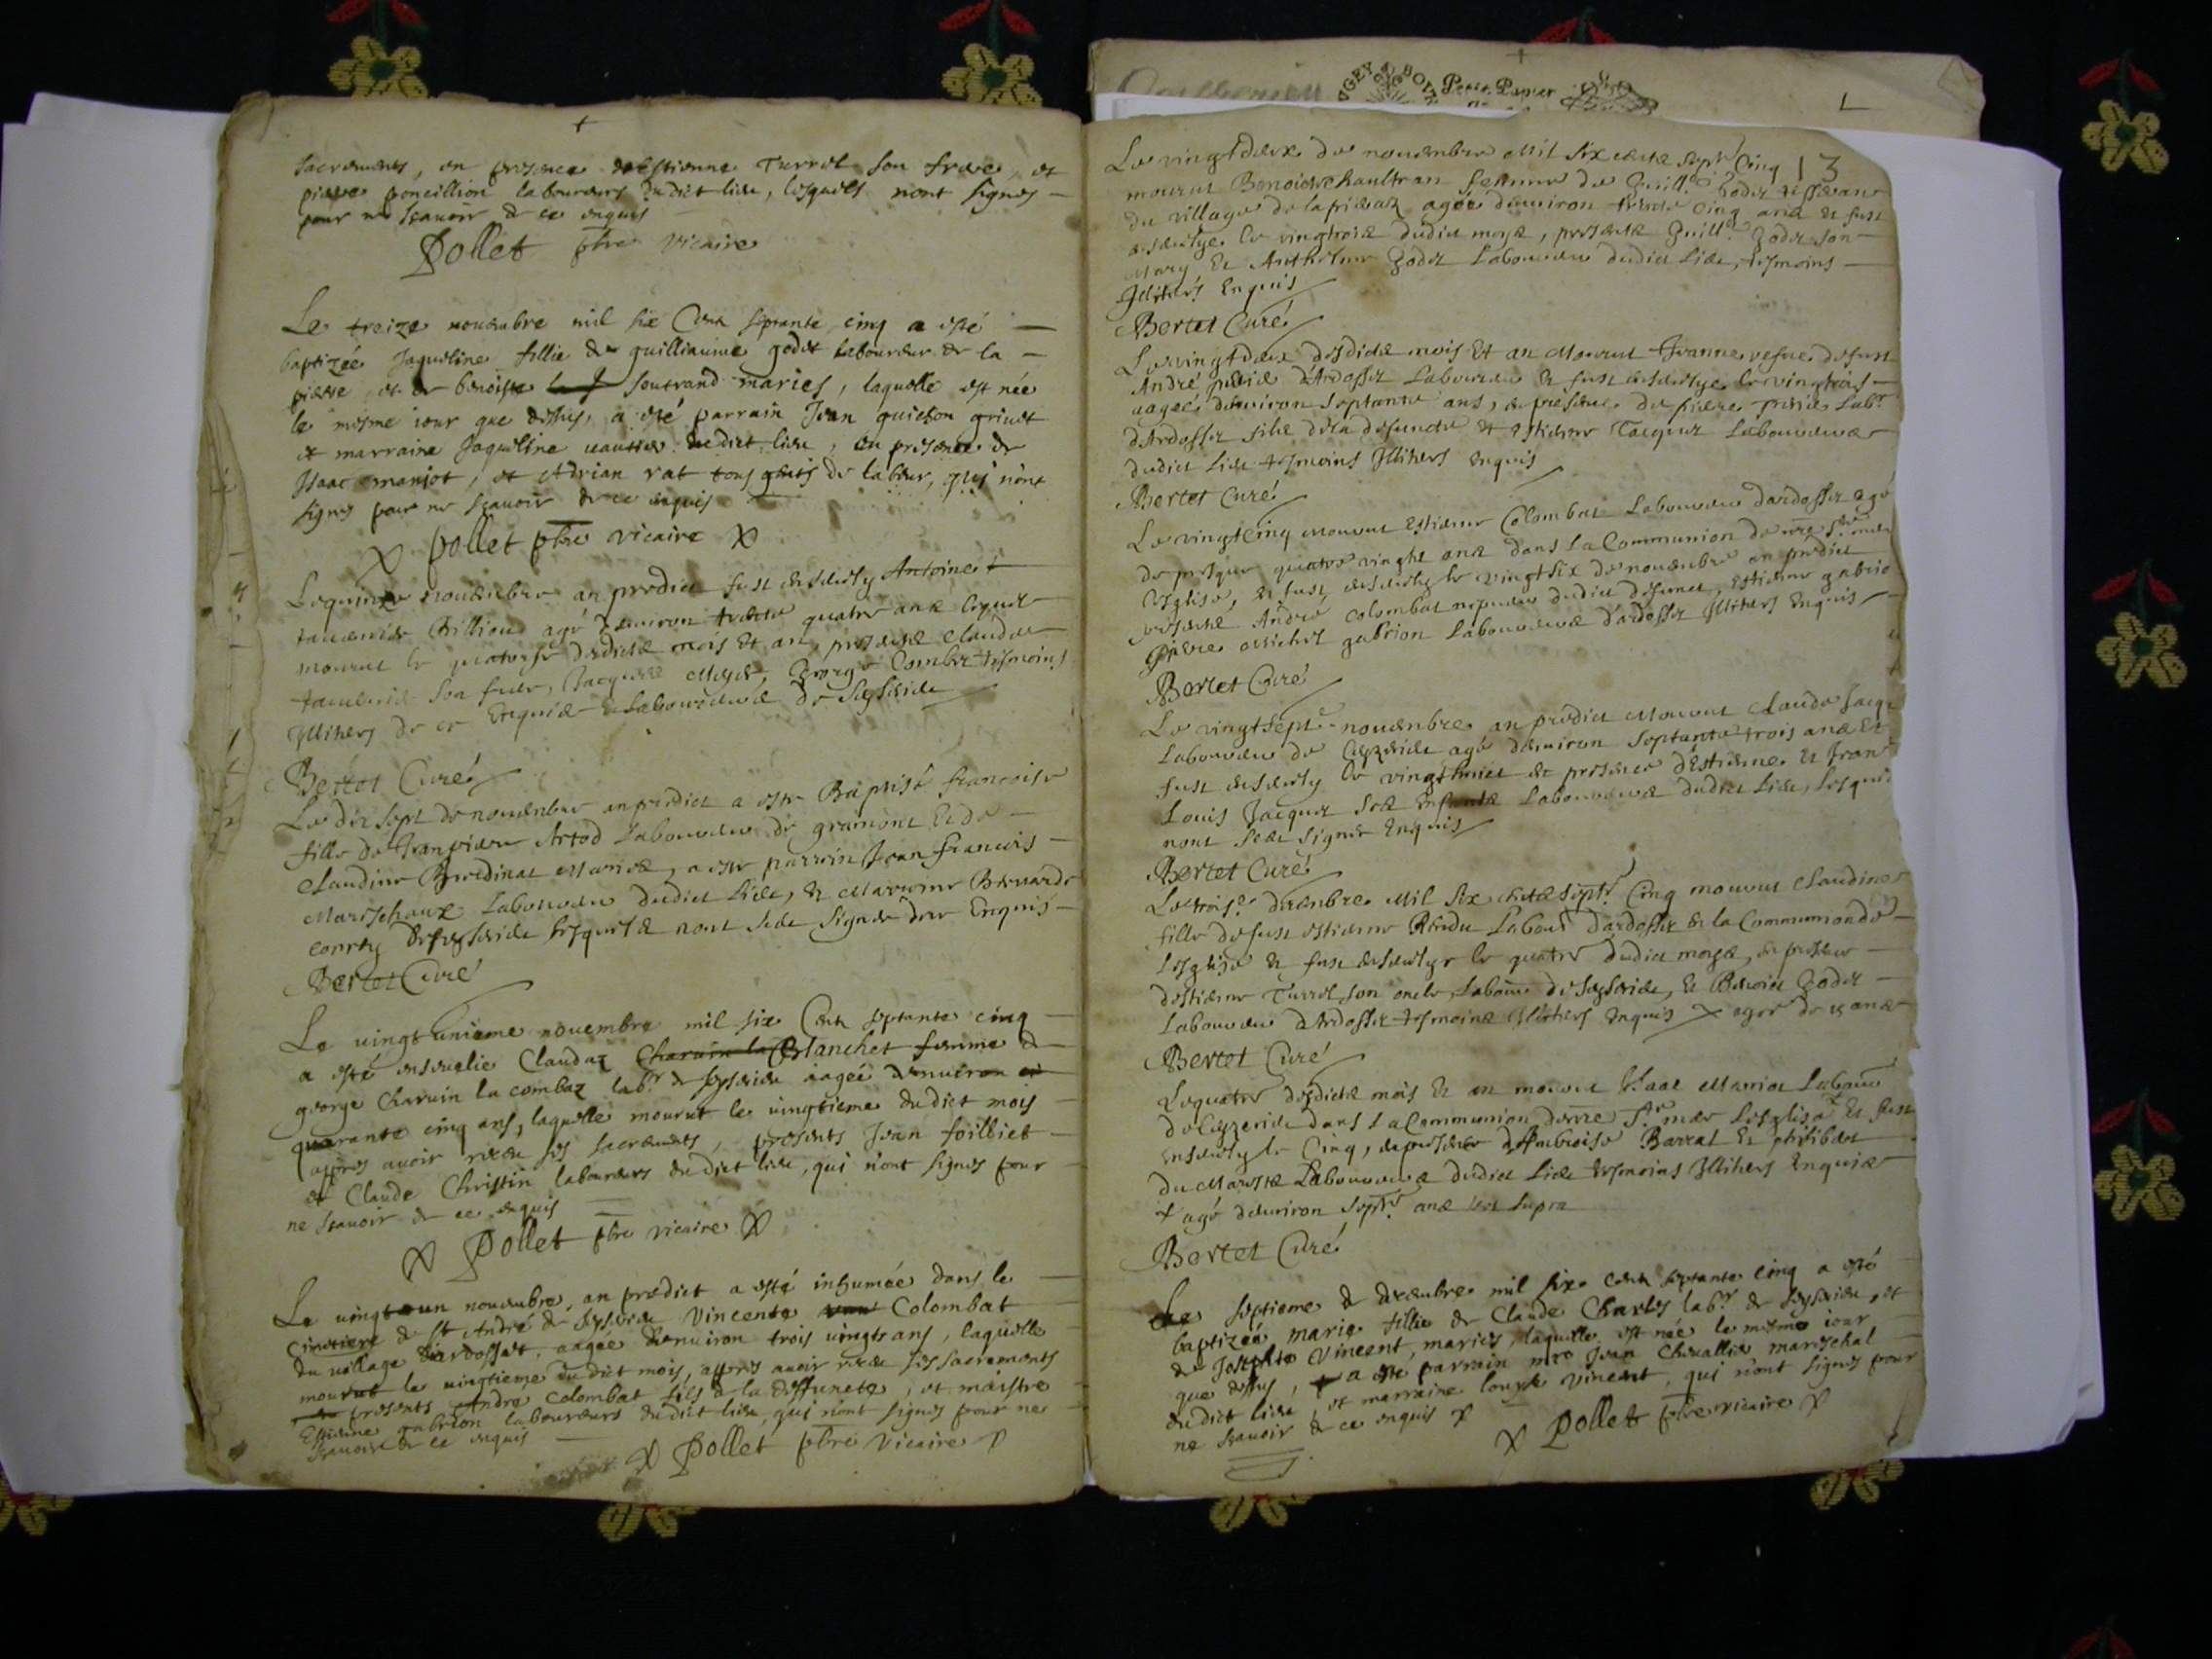 sacrements, en presence destienne Turrel son frere, et
pierre poncillion laboureurs dudict lieu, lesquels n'ont signes
pour ne scavoir de ce enquis
Pollet pbre vicaire
Le treize novembre mil six Cent septante cinq a esté
baptizée Jaqueline fillie de guilliaume godet laboureur de la
pierre, et de benoiste soutrand maries, laquelle est née
le mesme iour que dessus, a esté parrain Jean guichon grinet
et marraine Jaqueline vautier dudict lieu, en presence de
Isaac manjot, et Adrian rat tous gents de labeur, qui n'ont
signes pour ne scavoir de ce enquis
pollet pbre vicaire
Le quinze novembre an predict fust ensevely Antoine
Chillioud agé d'environ trente quatre ans lequel
mourut le quatorse desdicts mois et an, presents Claude
son frere, Jacques George Combet tesmoins
Illiterés de ce Enquis & laboureurs de Seyserieu
Bertet Curé
Le dix sept de novembre an predict a este Baptisé francoise
fille de Jean pierre Artod laboureur de gramont et de
Claudine Bredinat Mariés, a este parrein Jean francois
Marischaux laboureur dudict lieu, et Marreine Bernarde
conrty de seyserieu lesquels n'ont sceu signer de ce Enquis
Bertet Curé
Le vingt unieme novembre mil six Cent septante cinq
a esté ensevelie Claudaz Charvin la Blanchet femme de
george Charvin la combaz labr de seyserieu aagée denviron
quarante cinq ans, laquelle mourut le vingtieme dudict mois
appres avoir receu ses sacrements, presents Jean foilliet
et Claude Christin laboureurs dudict lieu, qui n'ont signes pour
ne scavoir de ce enquis
Pollet pbre vicaire
Le vingt un novembre, an predict a esté inhumée dans le
Cimetiere de st André de seyserieu Vincente Colombat
du village d'ardosset, aagée denviron trois vingts ans, laquelle
mourut le vingtieme dudict mois, appres avoir receu ses sacrements
presents Andre Colombat fils de la deffuncte, et maistre
Estienne gabrion laboureurs dudict lieu, qui n'ont signes pour ne
scavoir de ce enquis
Pollet pbre Vicaire
Petit Papier
13
Le vingt deux de novembre Mil six cents septte Cinq
mourut Benoiste haultran femme de Guille Godet tisseran
du village de la agée d'environ trente cinq ans et fust
ensevelye le vingtrois dudict moys, presents Guille Godet son
Mary et Anthelme Godet Laboureur dudict Lieu, tesmoins
Illiterés Enquis
Bertet Curé
Le vingt deux desdicts mois Et an Mourut Jeanne vefve de fust
André d'Ardosset Laboureur et fust ensevelye le vingtrois
aagée denviron septante ans, en presence de pierre Labr
d'Ardosset fils de la defuncte et estienne Jacquet Laboureurs
dudict Lieu tesmoins Illiterés Enquis
Bertet Curé
Le vingt cinq Mourut Estienne Colombat Laboureur dardosset agé
de presque quatre vinght ans dans la Communion de nre Ste mere
L'eglise, et fust ensevely le vingt six de novembre an predict
presents André Colombat nepveu dudict defunct, Estienne gabrio
Michel gabrion Laboureurs d'ardosset Illiterés Enquis
Bertet Curé
Le vingt sept novembre an predict Mourut Claude Jacqu
Laboureur de Ceyzerieu agé denviron septante trois ans Et
fust ensevely le vingt huict en presence d'Estienne et Jean
Louis Jacquet ses Enfants Laboureurs dudict Lieu, lesquels
n'ont sceu signer Enquis
Bertet Curé
Le troise decembre Mil six cents septte Cinq mourut Claudine
fille de fust estienne Rendu Labour d'ardosset en la Communion de
L'esglise et fust ensevelye le quatre dudict moys, en presence
d'estienne Turrel son oncle, Labour de seyserieu, et Benoict Godet
Laboureur d'Ardosset tesmoins Illiterés Enquis agée de ans
Bertet Curé
Le quatre desdicts mois et an mourut Isaac Labour
de Ceyzerieu dans La Communion de nre Ste mere L'esglise Et fust
ensevely le Cinq, en presence d'Ambroise Barrat et philibert
du Marest Laboureurs dudict Lieu tesmoins Illiterés Enquis
agé denviron septte ans ut supra
Bertet Curé
Le septieme de decembre mil six cent septante cinq a esté
baptizéé marie fillie de Claude Charles labr de seyserieu, et
de Josephte Vincent, maries, laquelle est née le mesme iour
que dessus, a este parrain mre Jean Chevallier marischal
dudict lieu, et marraine louyse vincent, qui n'ont signes pour
ne scavoir de ce enquis
Pollet pbre vicaire